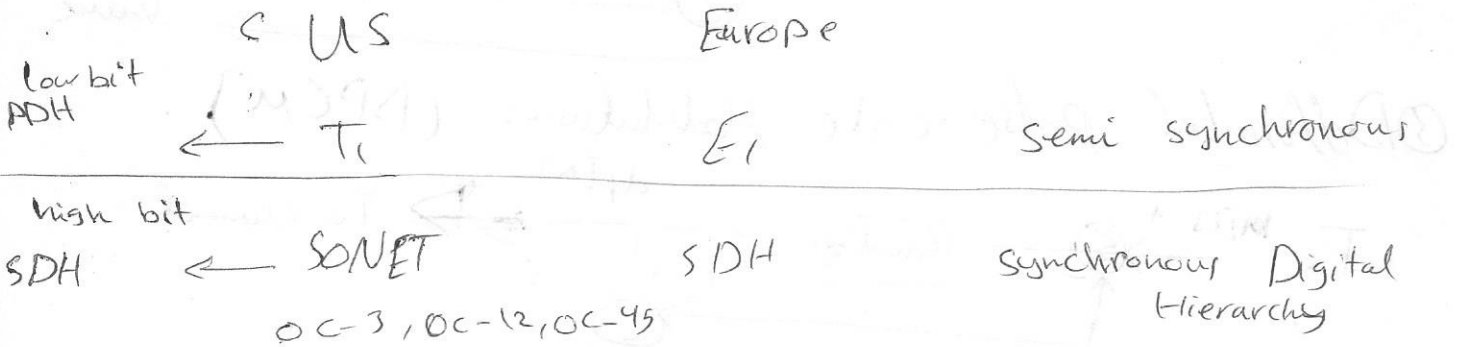 US Europe
low bit
PDH
← T1 E1 semi synchronous
high bit
SDH ← SONET SDH synchronous Digital
Hierarchy
OC-3, OC-12, OC-45